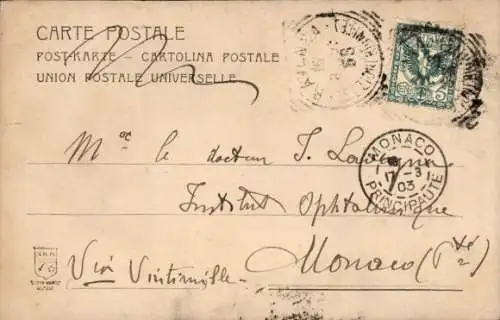 CARTE POSTALE
POST-KARTE – CARTOLINA POSTALE
UNION POSTALE UNIVERSELLE
5
MONACO
17-3
03
PRINCIPAUTÉ
Mr le docteur J.
Institut Ophtalmique
Monaco (Pté)
Via Vintimille